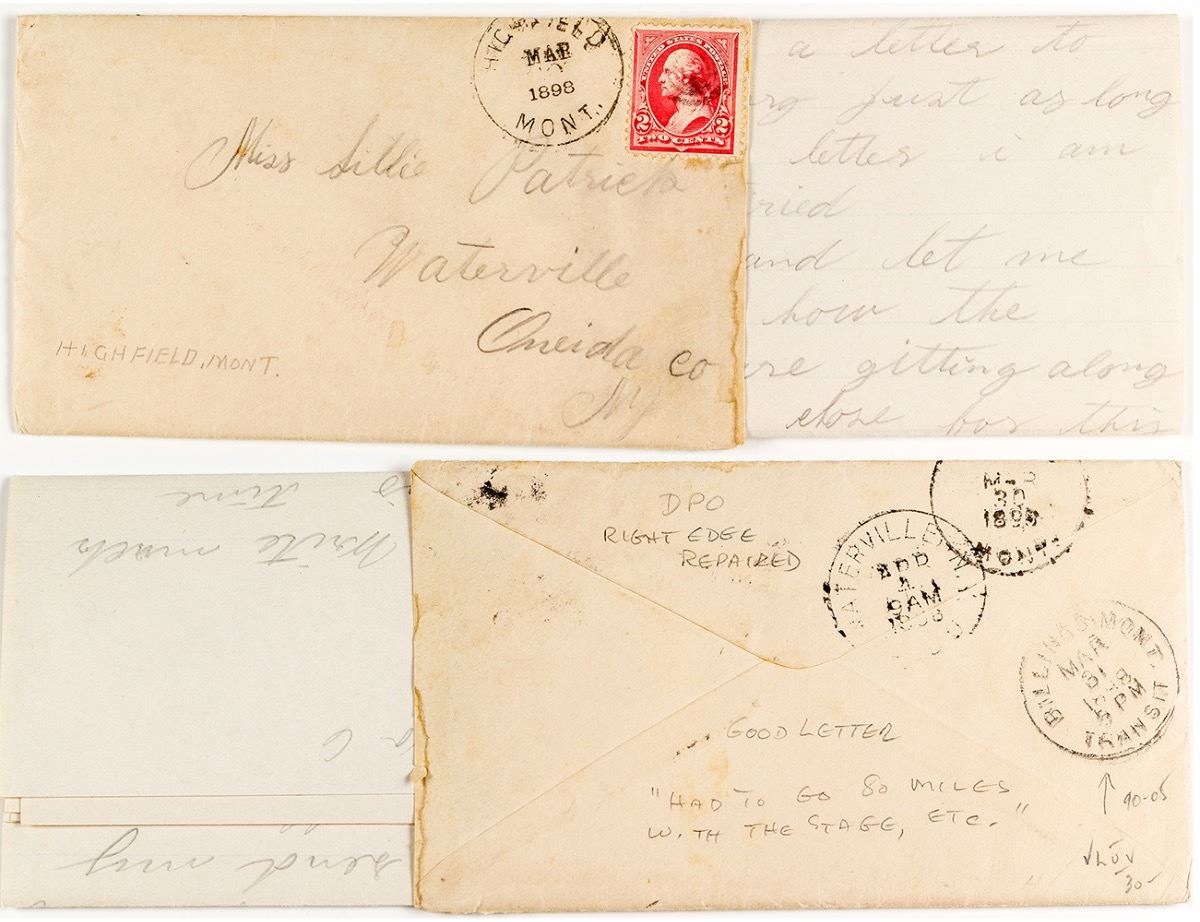 HIGHFIELD
MAR
1898
MONT.
UNITED STATES POSTAGE
2 2
TWO CENTS
Miss Lillie Patrick
Waterville
Oneida co
NY
HIGHFIELD, MONT.
a letter to
just as long
letter i am
ried
and let me
how the
are gitting along
close for this
time
Write
send my
DPO
RIGHT EDGE
REPAIRED
MAR
30
1898
MONT.
WATERVILLE N.Y.
APR
4
9AM
1898
BILLINGS, MONT.
MAR
31
5 PM
TRANSIT
GOOD LETTER
"HAD TO GO 80 MILES
WITH THE STAGE, ETC."
90-05
30-